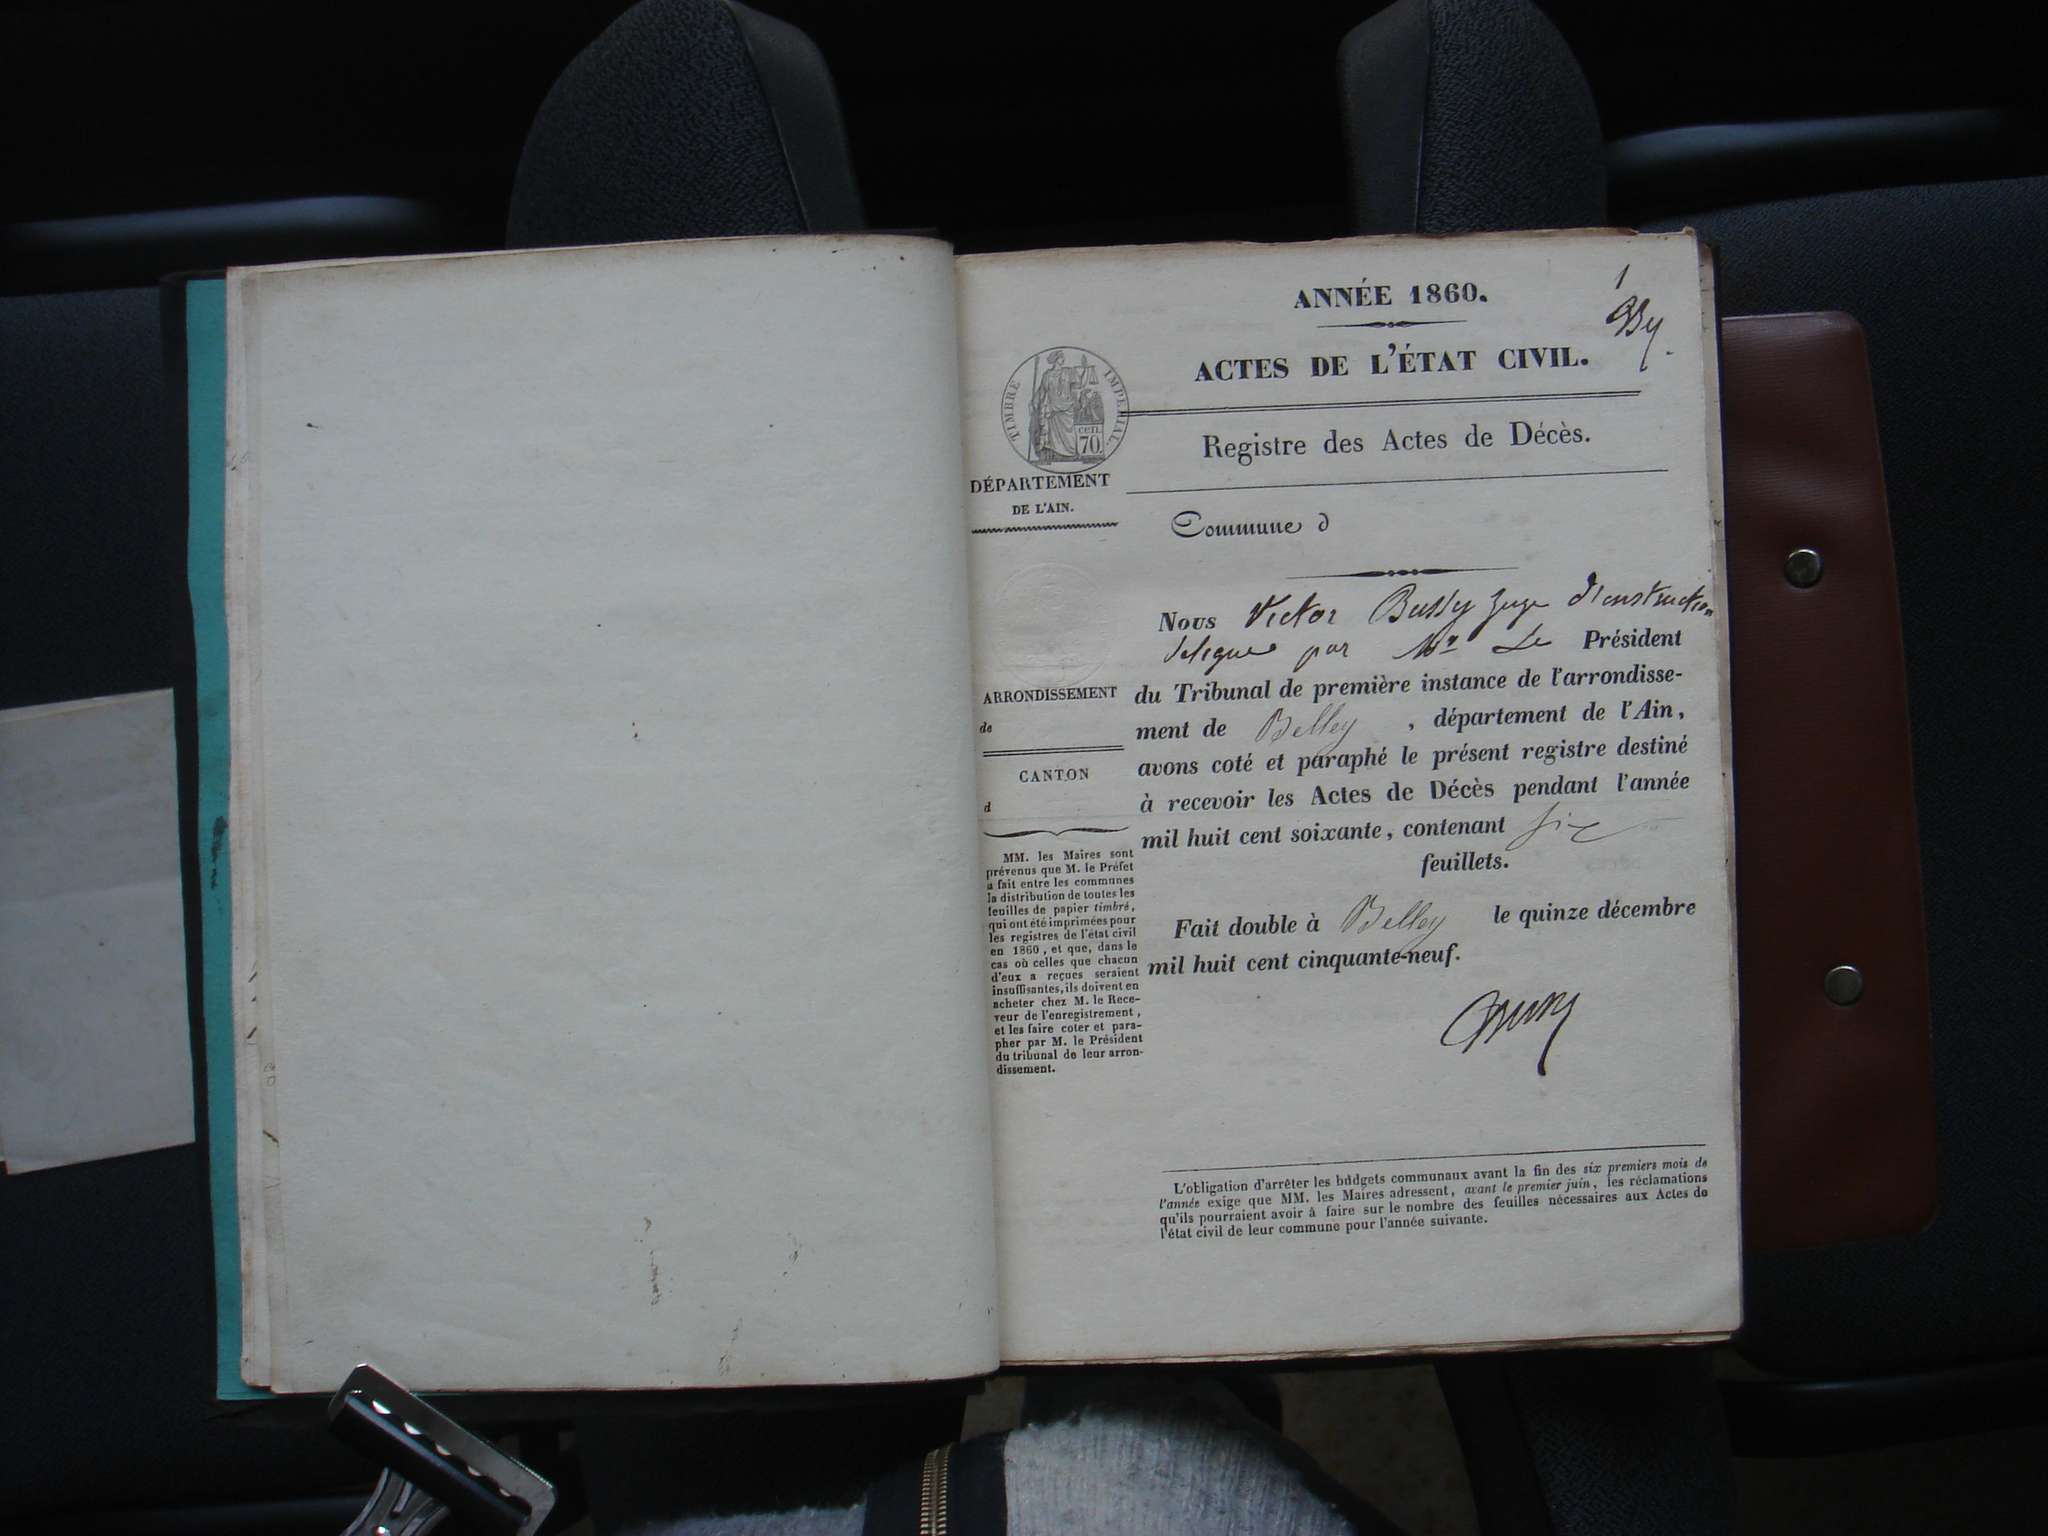 1
ANNÉE 1860.
ACTES DE L'ÉTAT CIVIL.
TIMBRE IMPERIAL.
cen.
70.
Registre des Actes de Décès.
DÉPARTEMENT
DE L'AIN.
Commune d
ARRONDISSEMENT
de
CANTON
d
MM. les Maires sont
prévenus que M. le Préfet
a fait entre les communes
la distribution de toutes les
feuilles de papier timbré,
qui ont été imprimées pour
les registres de l'état civil
en 1860, et que, dans le
cas où celles que chacun
d'eux a reçues seraient
insuffisantes, ils doivent en
acheter chez M. le Rece-
veur de l'enregistrement,
et les faire coter et para-
pher par M. le Président
du tribunal de leur arron-
dissement.
Nous Victor Bussy Juge d'instruction
delegue par Mr Le Président
du Tribunal de première instance de l'arrondisse-
ment de Belley, département de l'Ain,
avons coté et paraphé le présent registre destiné
à recevoir les Actes de Décès pendant l'année
mil huit cent soixante, contenant six
feuillets.
Fait double à Belley le quinze décembre
mil huit cent cinquante-neuf.
L'obligation d'arrêter les budgets communaux avant la fin des six premiers mois de
l'année exige que MM. les Maires adressent, avant le premier juin, les réclamations
qu'ils pourraient avoir à faire sur le nombre des feuilles nécessaires aux Actes de
l'état civil de leur commune pour l'année suivante.